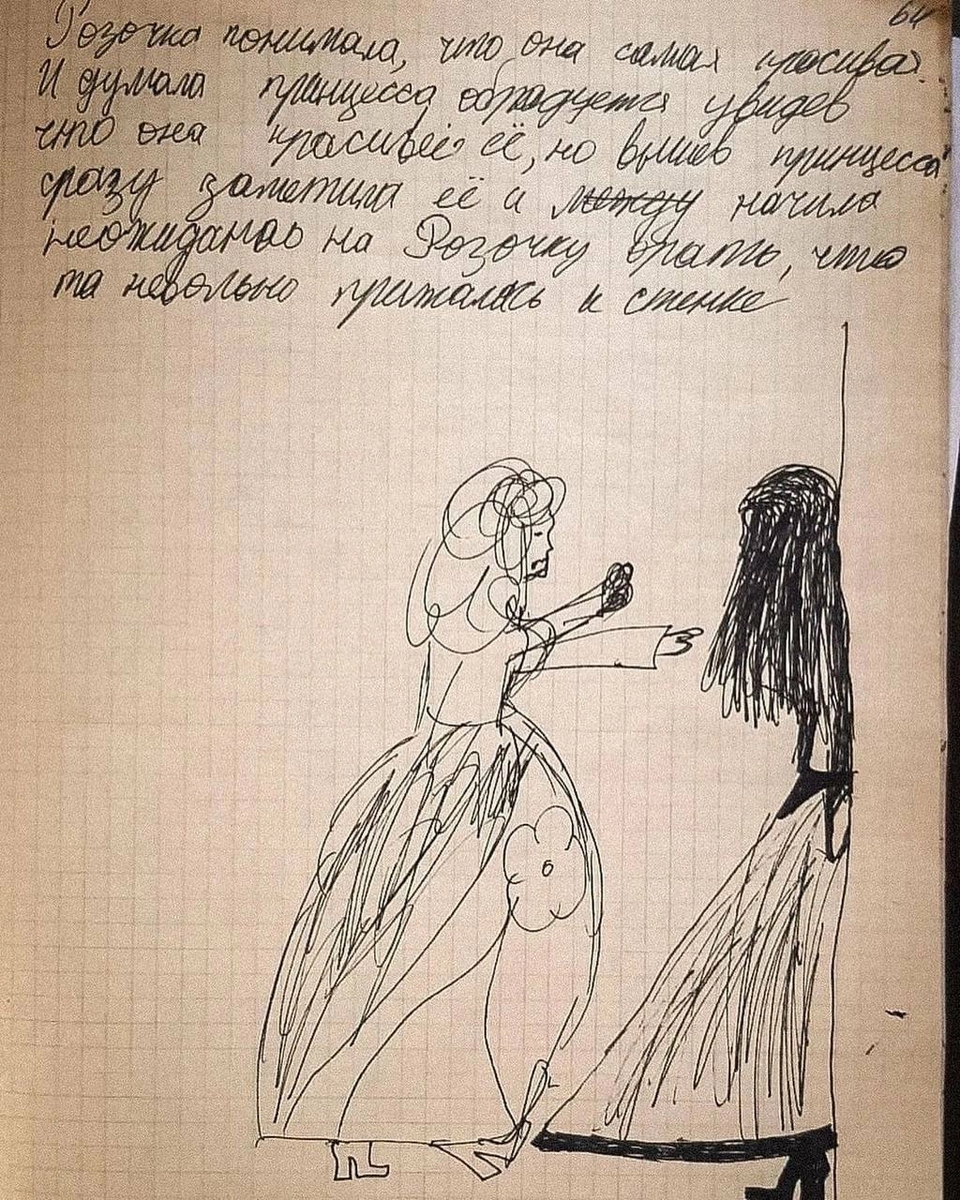 64
Розочка понимала, что она самая красивая.
И думала принцесса обрадуется увидев
что она красивее её, но вышев принцесса
сразу заметила её и между начила
неожиданно на Розочку орать, что
та невольно прижалась к стенке